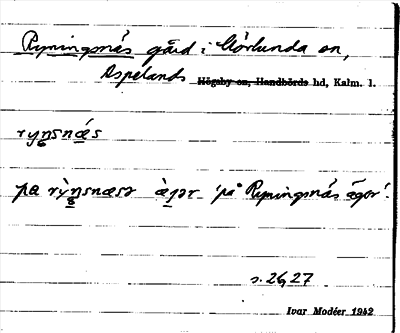 Ryningsnäs gård i Mörlunda sn,
Aspelands Högsby sn, Handbörds hd, Kalm. l.
rynsnæs
pa rỳnsnæsə 'på Ryningsnäs ägor'.
s. 26, 27
Ivar Modéer 1942